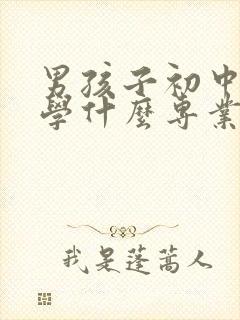 男孩子初中
學什麼專業
我是蓬蒿人